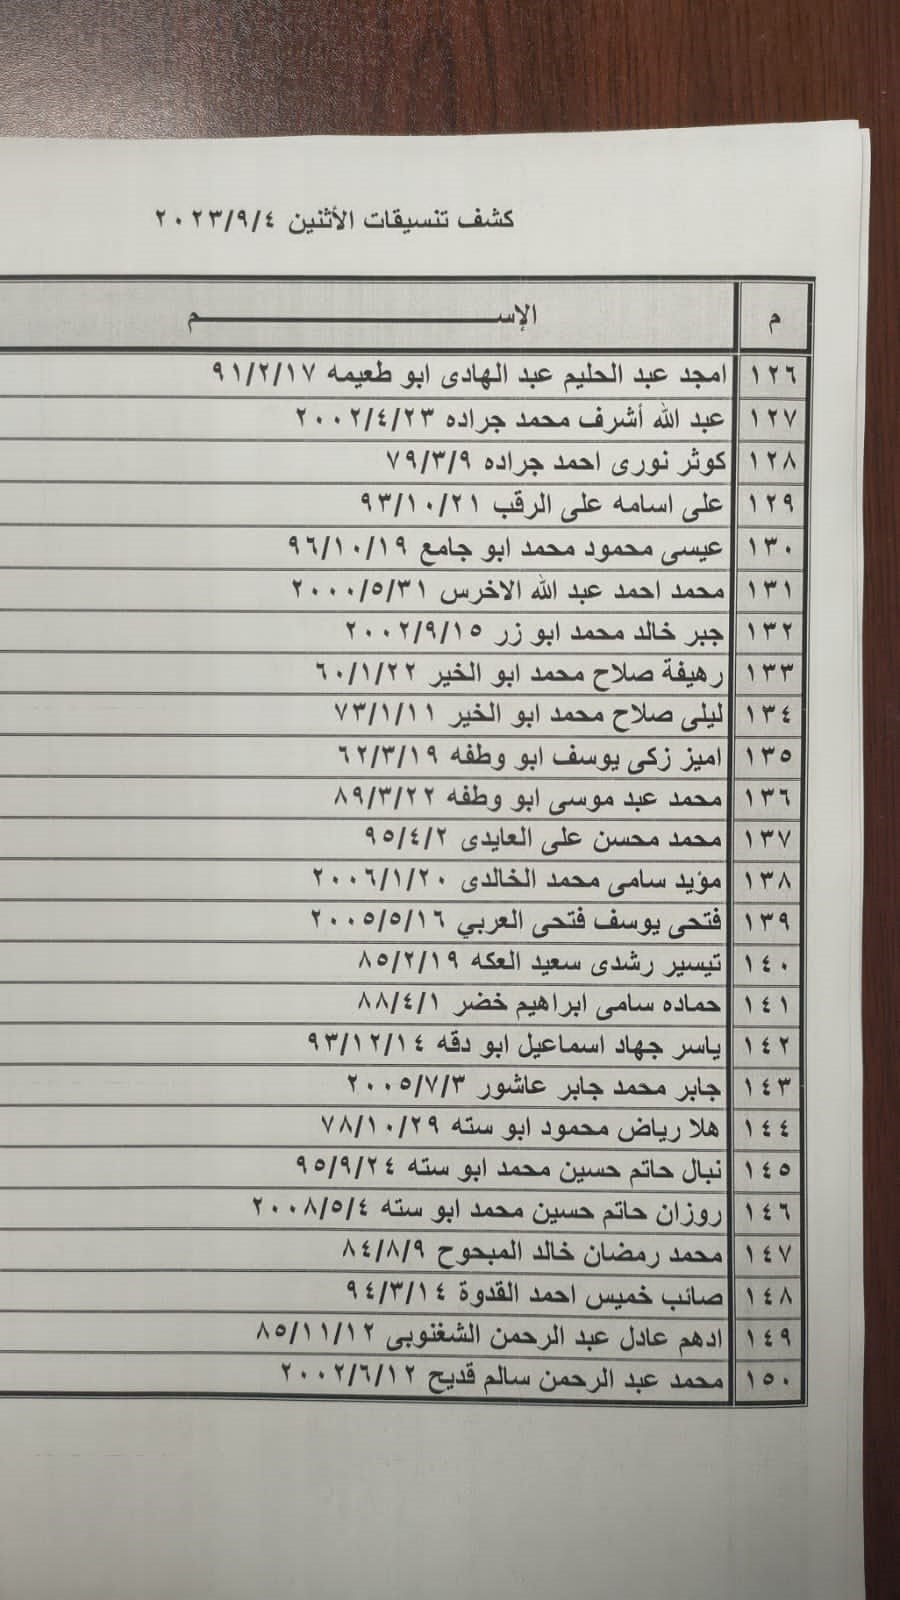 كشف تنسيقات الأثنين ٢٠٢٣/٩/٤
م الإســـــــــــــم
١٢٦ امجد عبد الحليم عبد الهادى ابو طعيمه ٩١/٢/١٧
١٢٧ عبد الله أشرف محمد جراده ٢٠٠٢/٤/٢٣
١٢٨ كوثر نورى احمد جراده ٧٩/٣/٩
١٢٩ على اسامه على الرقب ٩٣/١٠/٢١
١٣٠ عيسى محمود محمد ابو جامع ٩٦/١٠/١٩
١٣١ محمد احمد عبد الله الاخرس ٢٠٠٠/٥/٣١
١٣٢ جبر خالد محمد ابو زر ٢٠٠٢/٩/١٥
١٣٣ رهيفة صلاح محمد ابو الخير ٦٠/١/٢٢
١٣٤ ليلى صلاح محمد ابو الخير ٧٣/١/١١
١٣٥ اميز زكى يوسف ابو وطفه ٦٢/٣/١٩
١٣٦ محمد عبد موسى ابو وطفه ٨٩/٣/٢٢
١٣٧ محمد محسن على العايدى ٩٥/٤/٢
١٣٨ مؤيد سامى محمد الخالدى ٢٠٠٦/١/٢٠
١٣٩ فتحى يوسف فتحى العربي ٢٠٠٥/٥/١٦
١٤٠ تيسير رشدى سعيد العكه ٨٥/٢/١٩
١٤١ حماده سامى ابراهيم خضر ٨٨/٤/١
١٤٢ ياسر جهاد اسماعيل ابو دقه ٩٣/١٢/١٤
١٤٣ جابر محمد جابر عاشور ٢٠٠٥/٧/٣
١٤٤ هلا رياض محمود ابو سته ٧٨/١٠/٢٩
١٤٥ نبال حاتم حسين محمد ابو سته ٩٥/٩/٢٤
١٤٦ روزان حاتم حسين محمد ابو سته ٢٠٠٨/٥/٤
١٤٧ محمد رمضان خالد المبحوح ٨٤/٨/٩
١٤٨ صائب خميس احمد القدوة ٩٤/٣/١٤
١٤٩ ادهم عادل عبد الرحمن الشغنوبى ٨٥/١١/١٢
١٥٠ محمد عبد الرحمن سالم قديح ٢٠٠٢/٦/١٢